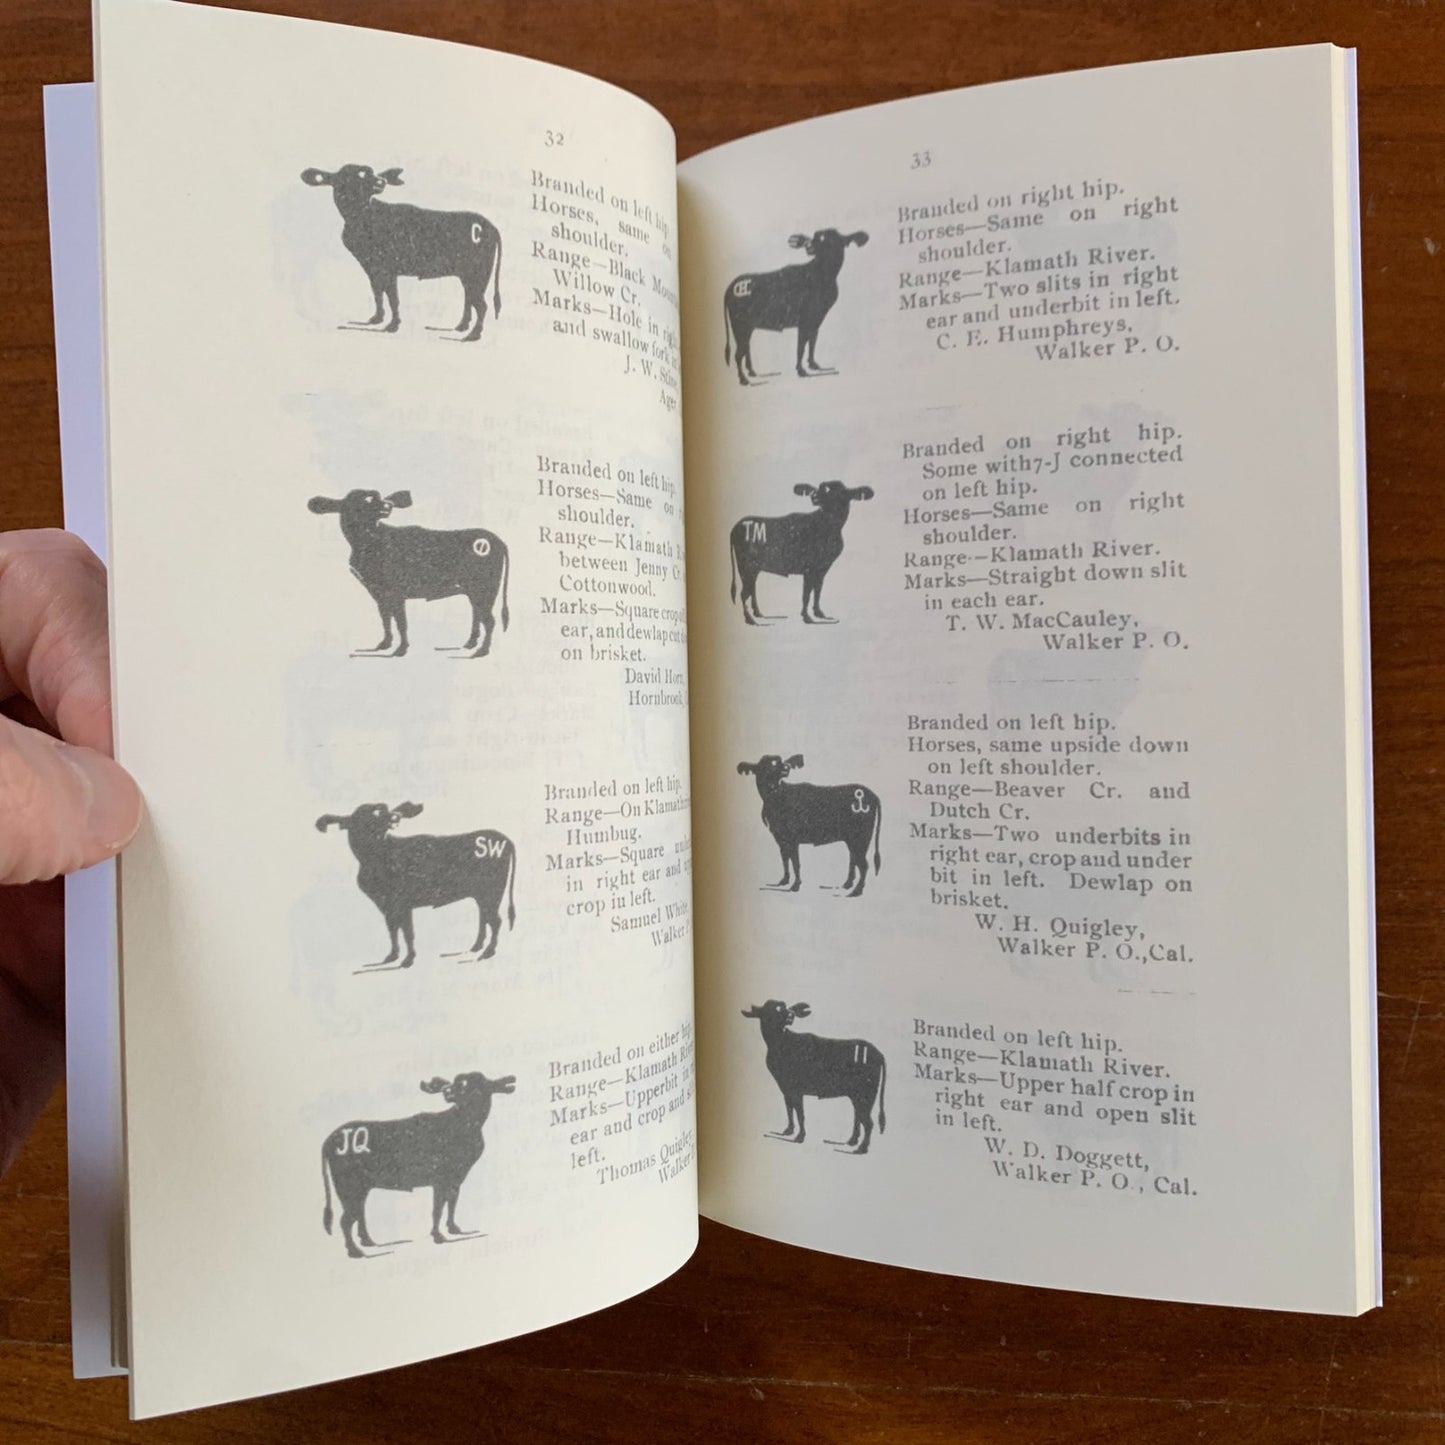 32
C
Branded on left hip.
Horses, same on
shoulder.
Range—Black
Willow Cr.
Marks—Hole in
and swallow fork
J. W.
Ager
Branded on left hip.
Horses—Same on
shoulder.
Range—Klamath
between Jenny Cr.
Cottonwood.
Marks—Square crop
ear, and dewlap cut
on brisket.
David Horn,
Hornbrook,
SW
Branded on left hip.
Range—On Klamath
Humbug.
Marks—Square
in right ear and
crop in left.
Samuel White,
Walker
JQ
Branded on either hip.
Range—Klamath River.
Marks—Upperbit in
ear and crop and
left.
Thomas Quigley,
Walker
33
Branded on right hip.
Horses—Same on right
shoulder.
Range—Klamath River.
Marks—Two slits in right
ear and underbit in left.
C. E. Humphreys,
Walker P. O.
TM
Branded on right hip.
Some with 7-J connected
on left hip.
Horses—Same on right
shoulder.
Range—Klamath River.
Marks—Straight down slit
in each ear.
T. W. MacCauley,
Walker P. O.
Branded on left hip.
Horses, same upside down
on left shoulder.
Range—Beaver Cr. and
Dutch Cr.
Marks—Two underbits in
right ear, crop and under
bit in left. Dewlap on
brisket.
W. H. Quigley,
Walker P. O., Cal.
II
Branded on left hip.
Range—Klamath River.
Marks—Upper half crop in
right ear and open slit
in left.
W. D. Doggett,
Walker P. O., Cal.